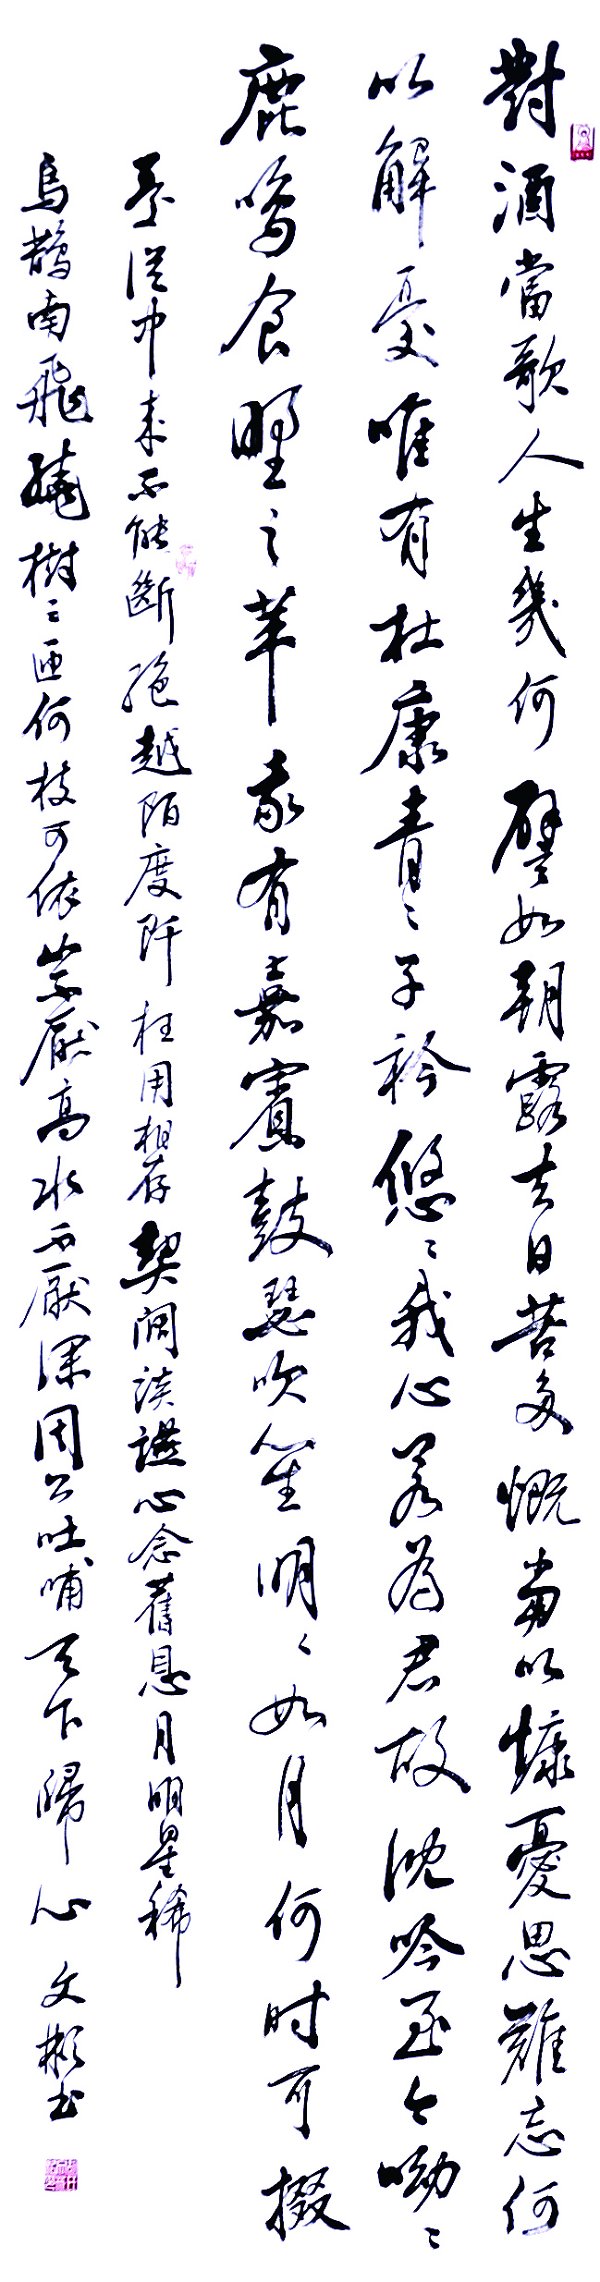 對酒當歌人生幾何譬如朝露去日苦多慨當以慷憂思難忘何
以解憂唯有杜康青〻子衿悠〻我心若為君故沈吟至今呦〻
鹿鳴食野之苹我有嘉賓鼓瑟吹笙明〻如月何时可掇
憂從中来不能斷絕越陌度阡枉用相存契闊談讌心念舊恩月明星稀
烏鵲南飛繞樹三匝何枝可依山不厭高水不厭深周公吐哺天下歸心 文彬书